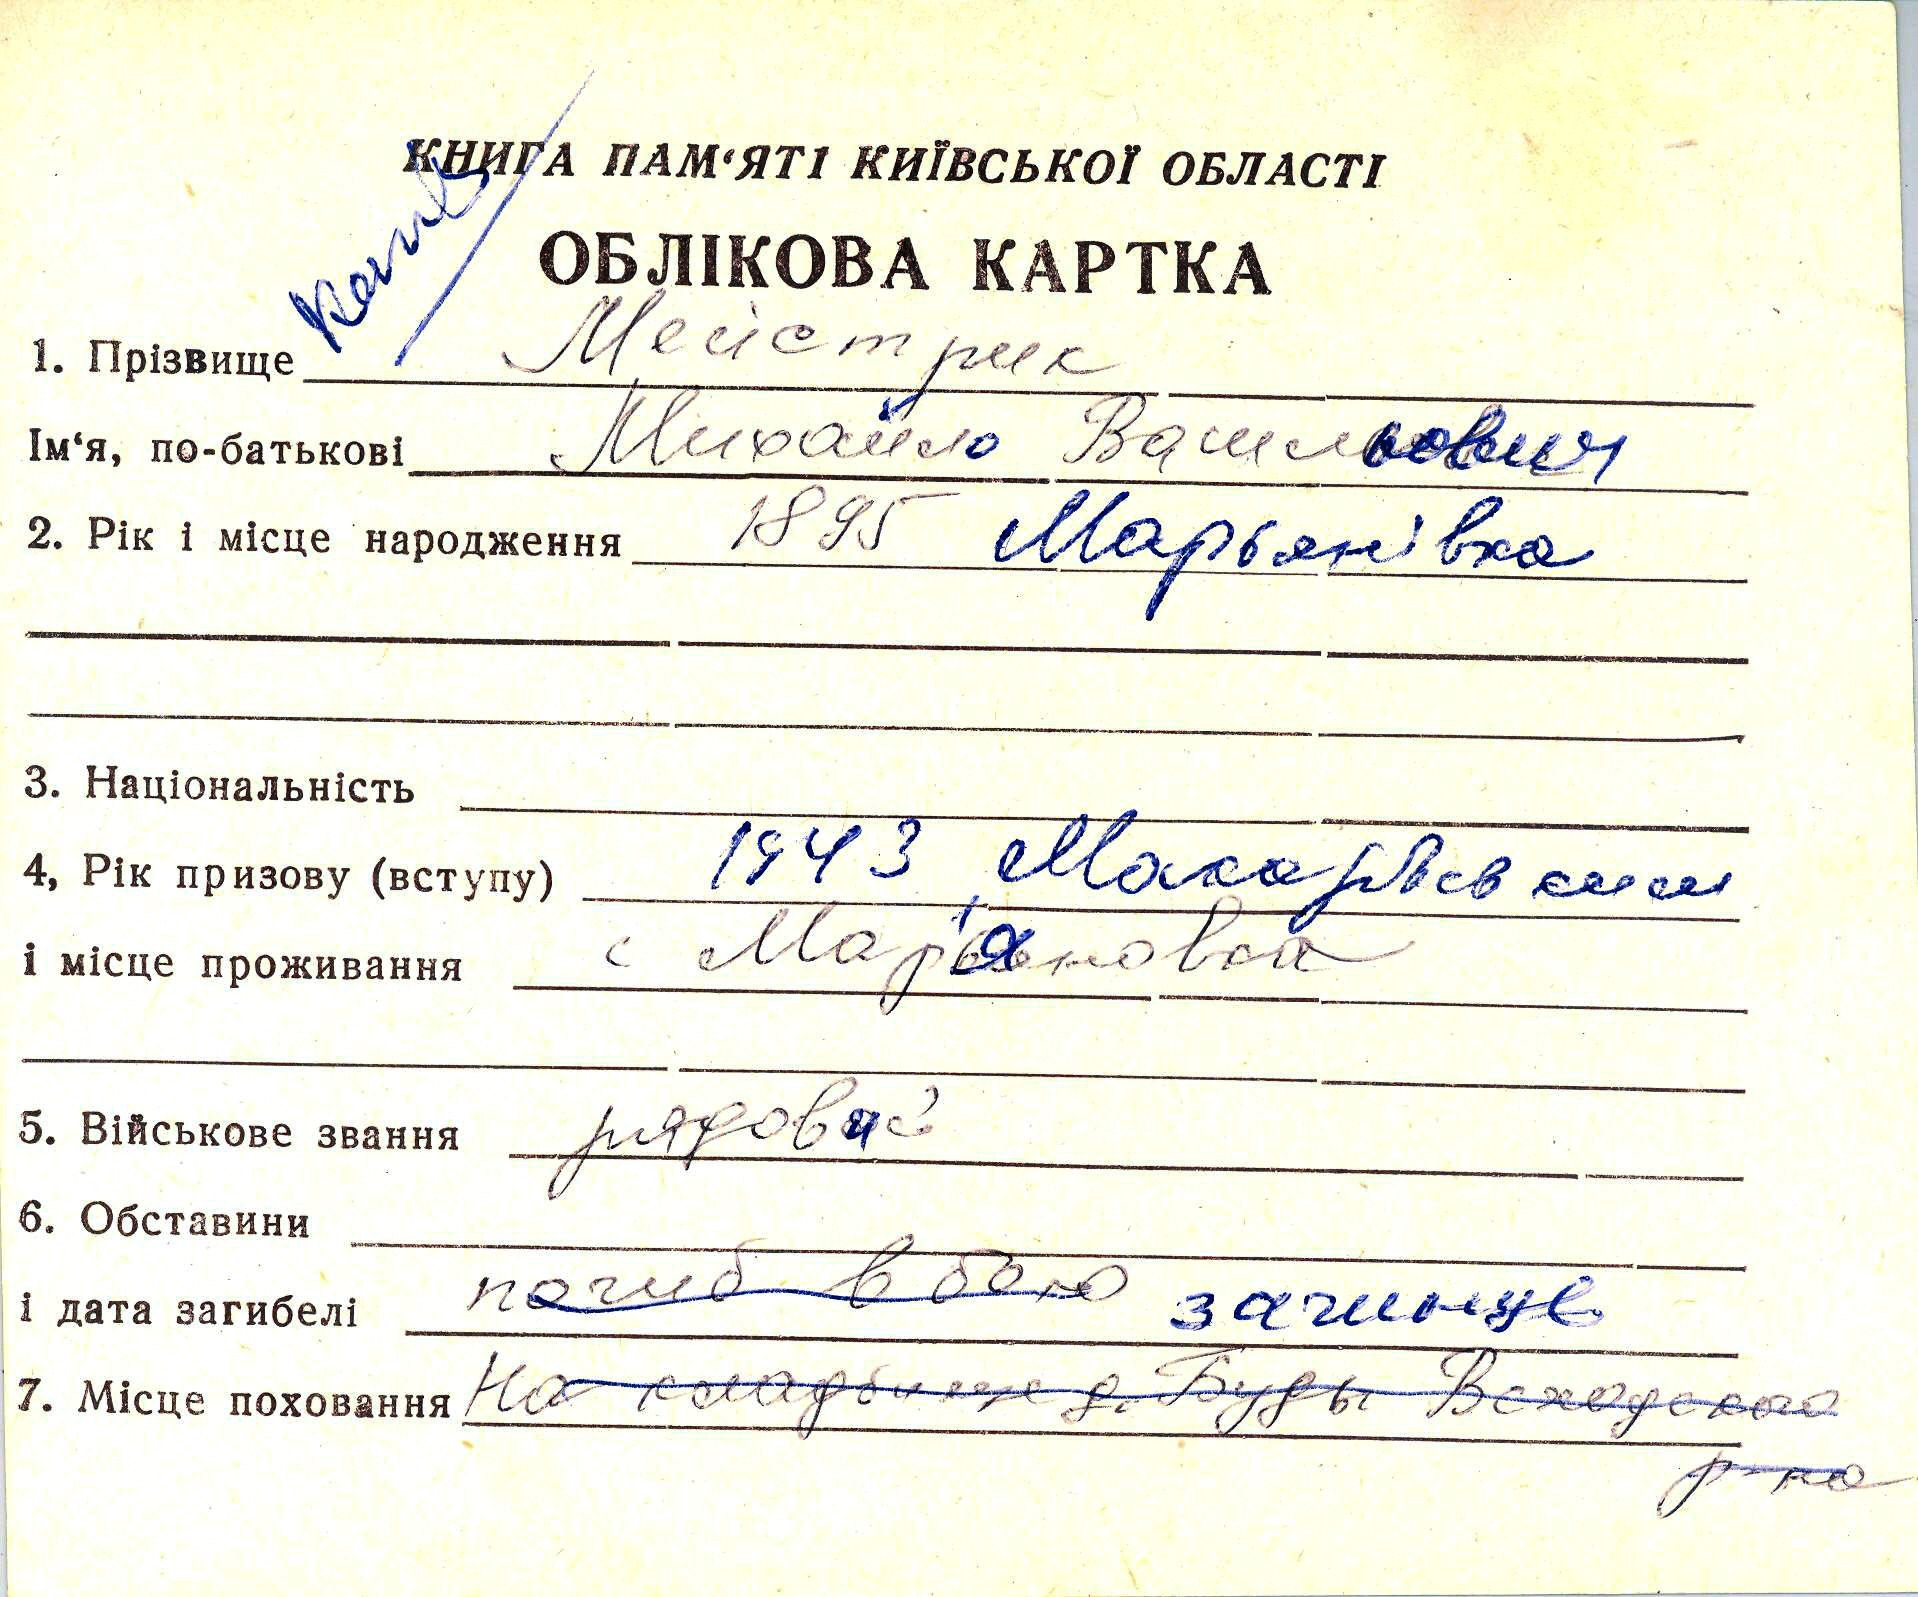 КНИГА ПАМ‘ЯТІ КИЇВСЬКОЇ ОБЛАСТІ
ОБЛІКОВА КАРТКА
1. Прізвище Мейстрик
Ім‘я, по-батькові Михайло Васильович
2. Рік і місце народження 1895 Мар'янівка
3. Національність
4, Рік призову (вступу) 1943 Макарівским
і місце проживання с Мар'яновка
5. Військове звання рядовий
6. Обставини
і дата загибелі погиб в бою загинув
7. Місце поховання На кладбище д. Буды Всходского
р-на